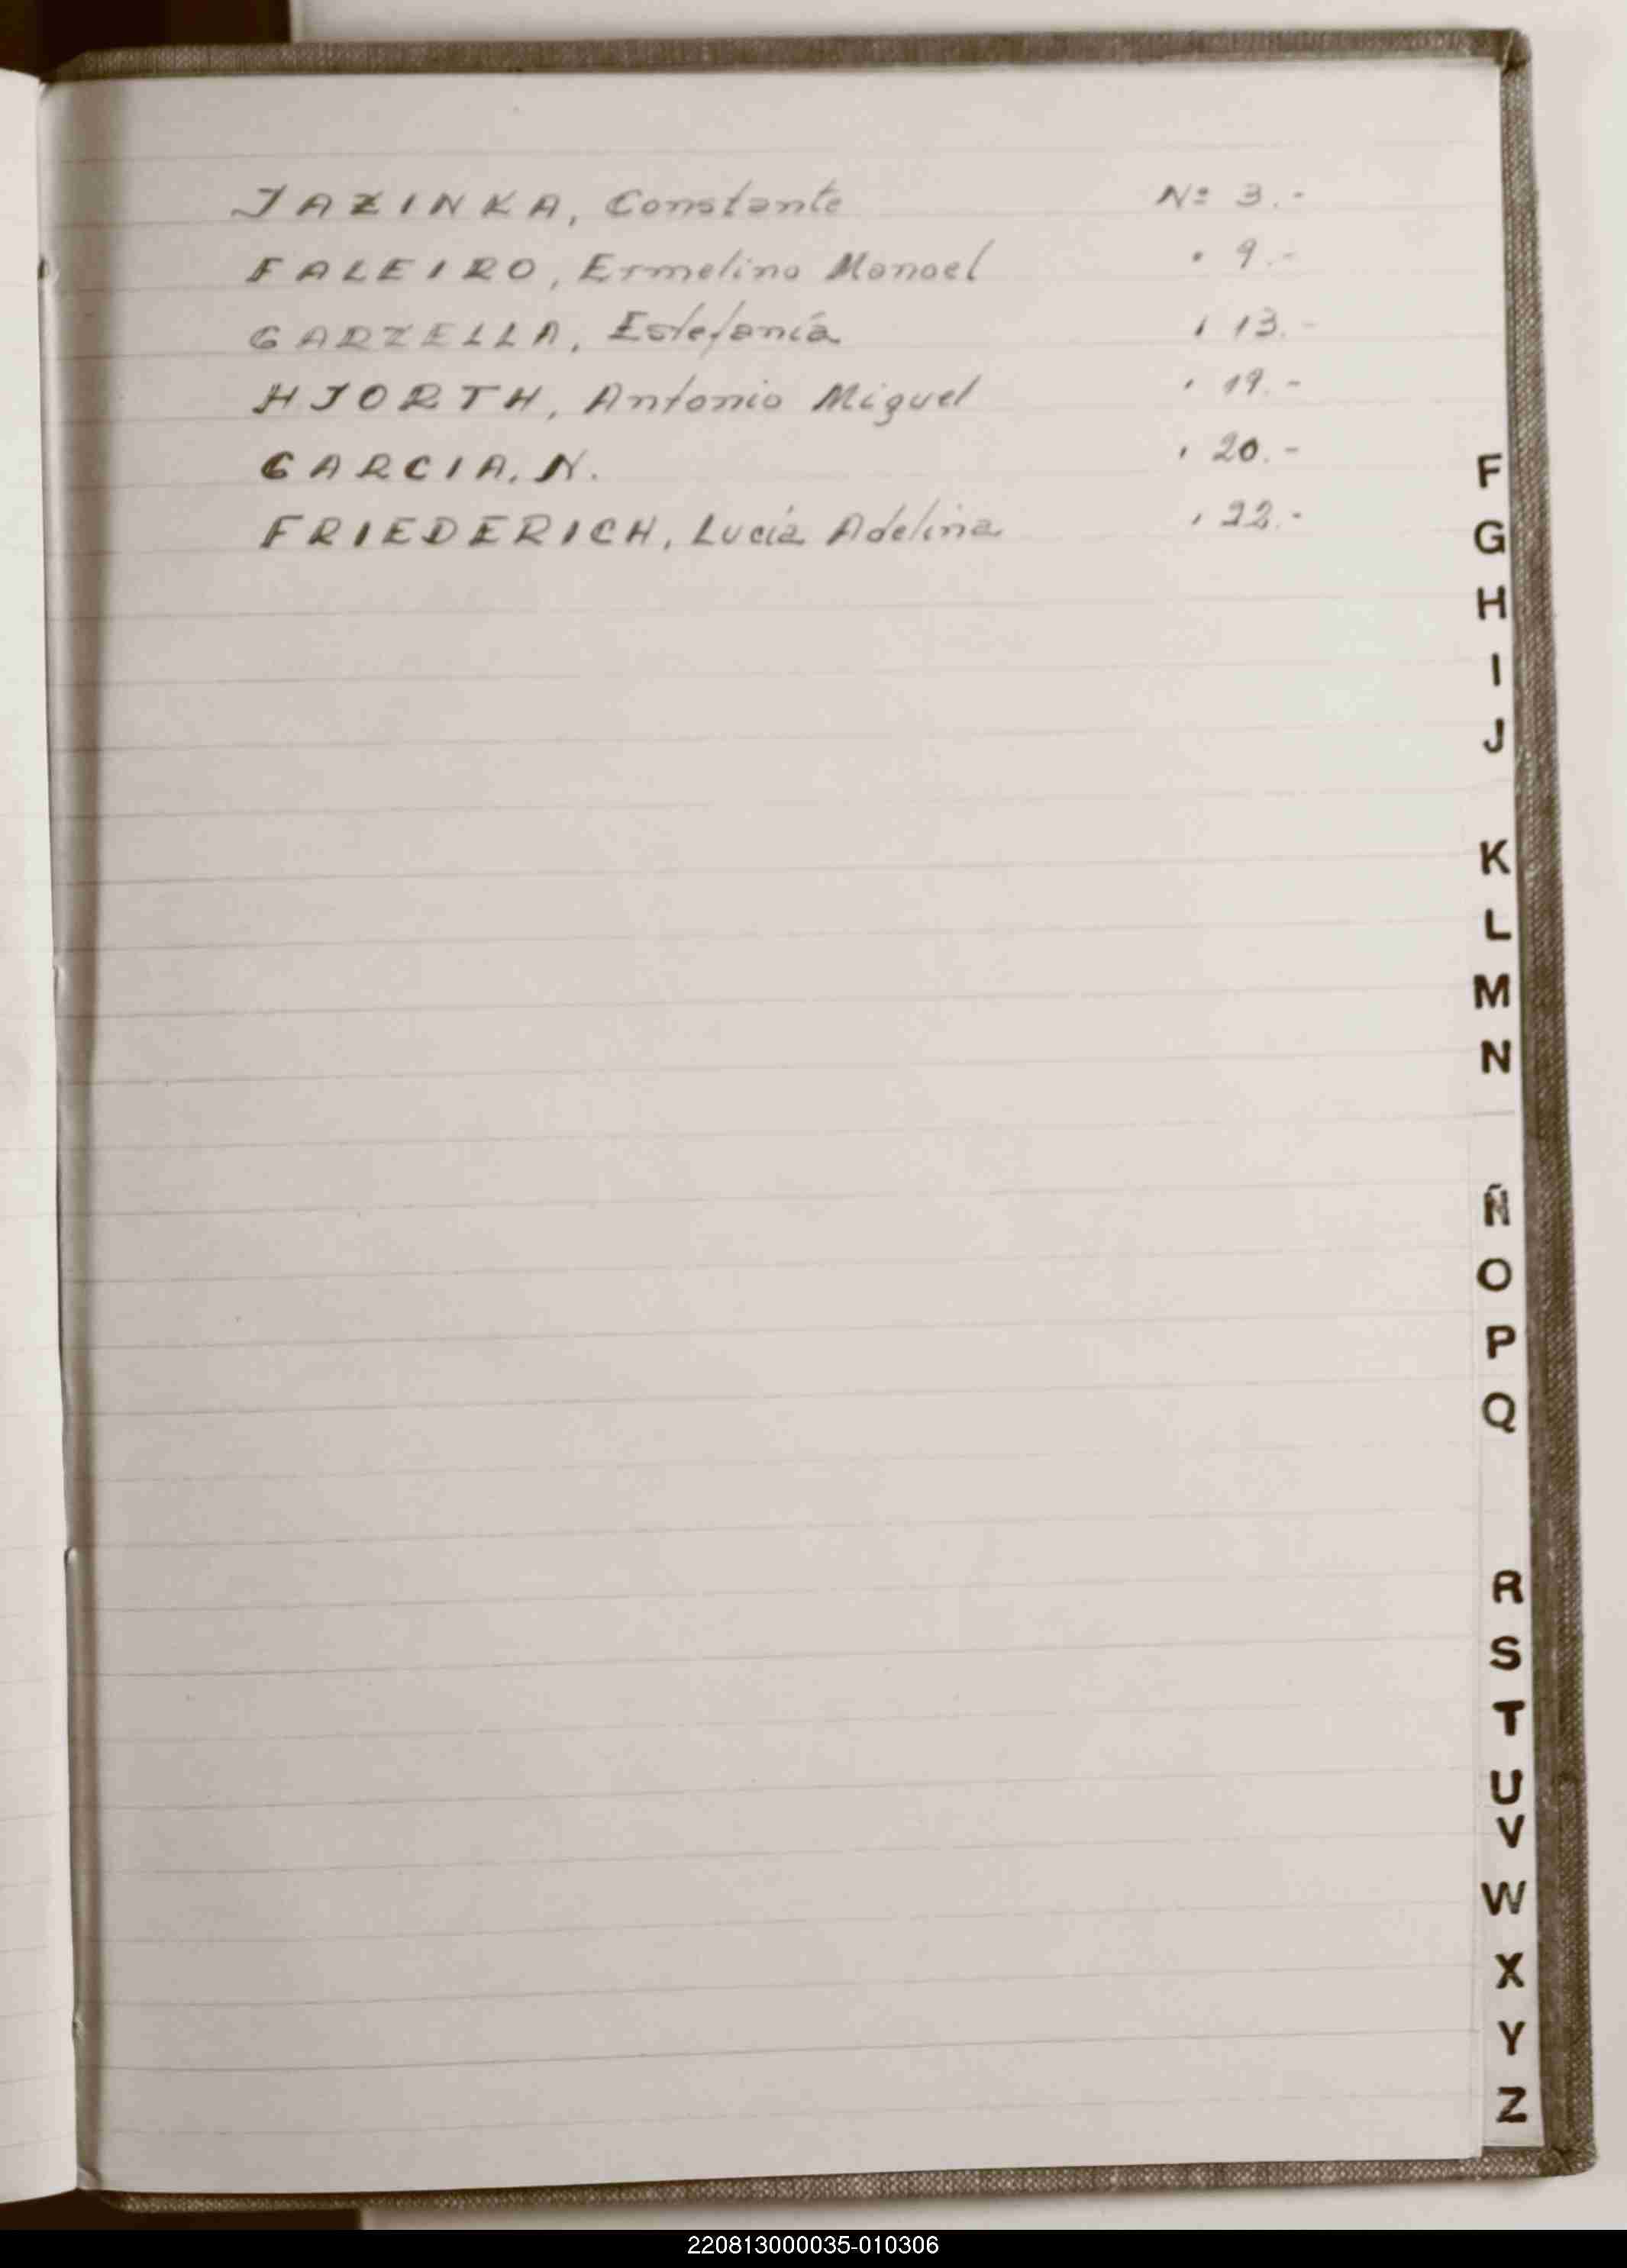 JAZINKA, Constante Nº 3.-
FALEIRO, Ermelino Manoel " 9.-
GARZELLA, Estefanía " 13.-
HJORTH, Antonio Miguel " 19.-
GARCIA, N. " 20.-
FRIEDERICH, Lucía Adelina " 22.-
F
G
H
I
J
K
L
M
N
Ñ
O
P
Q
R
S
T
U
V
W
X
Y
Z
220813000035-010306